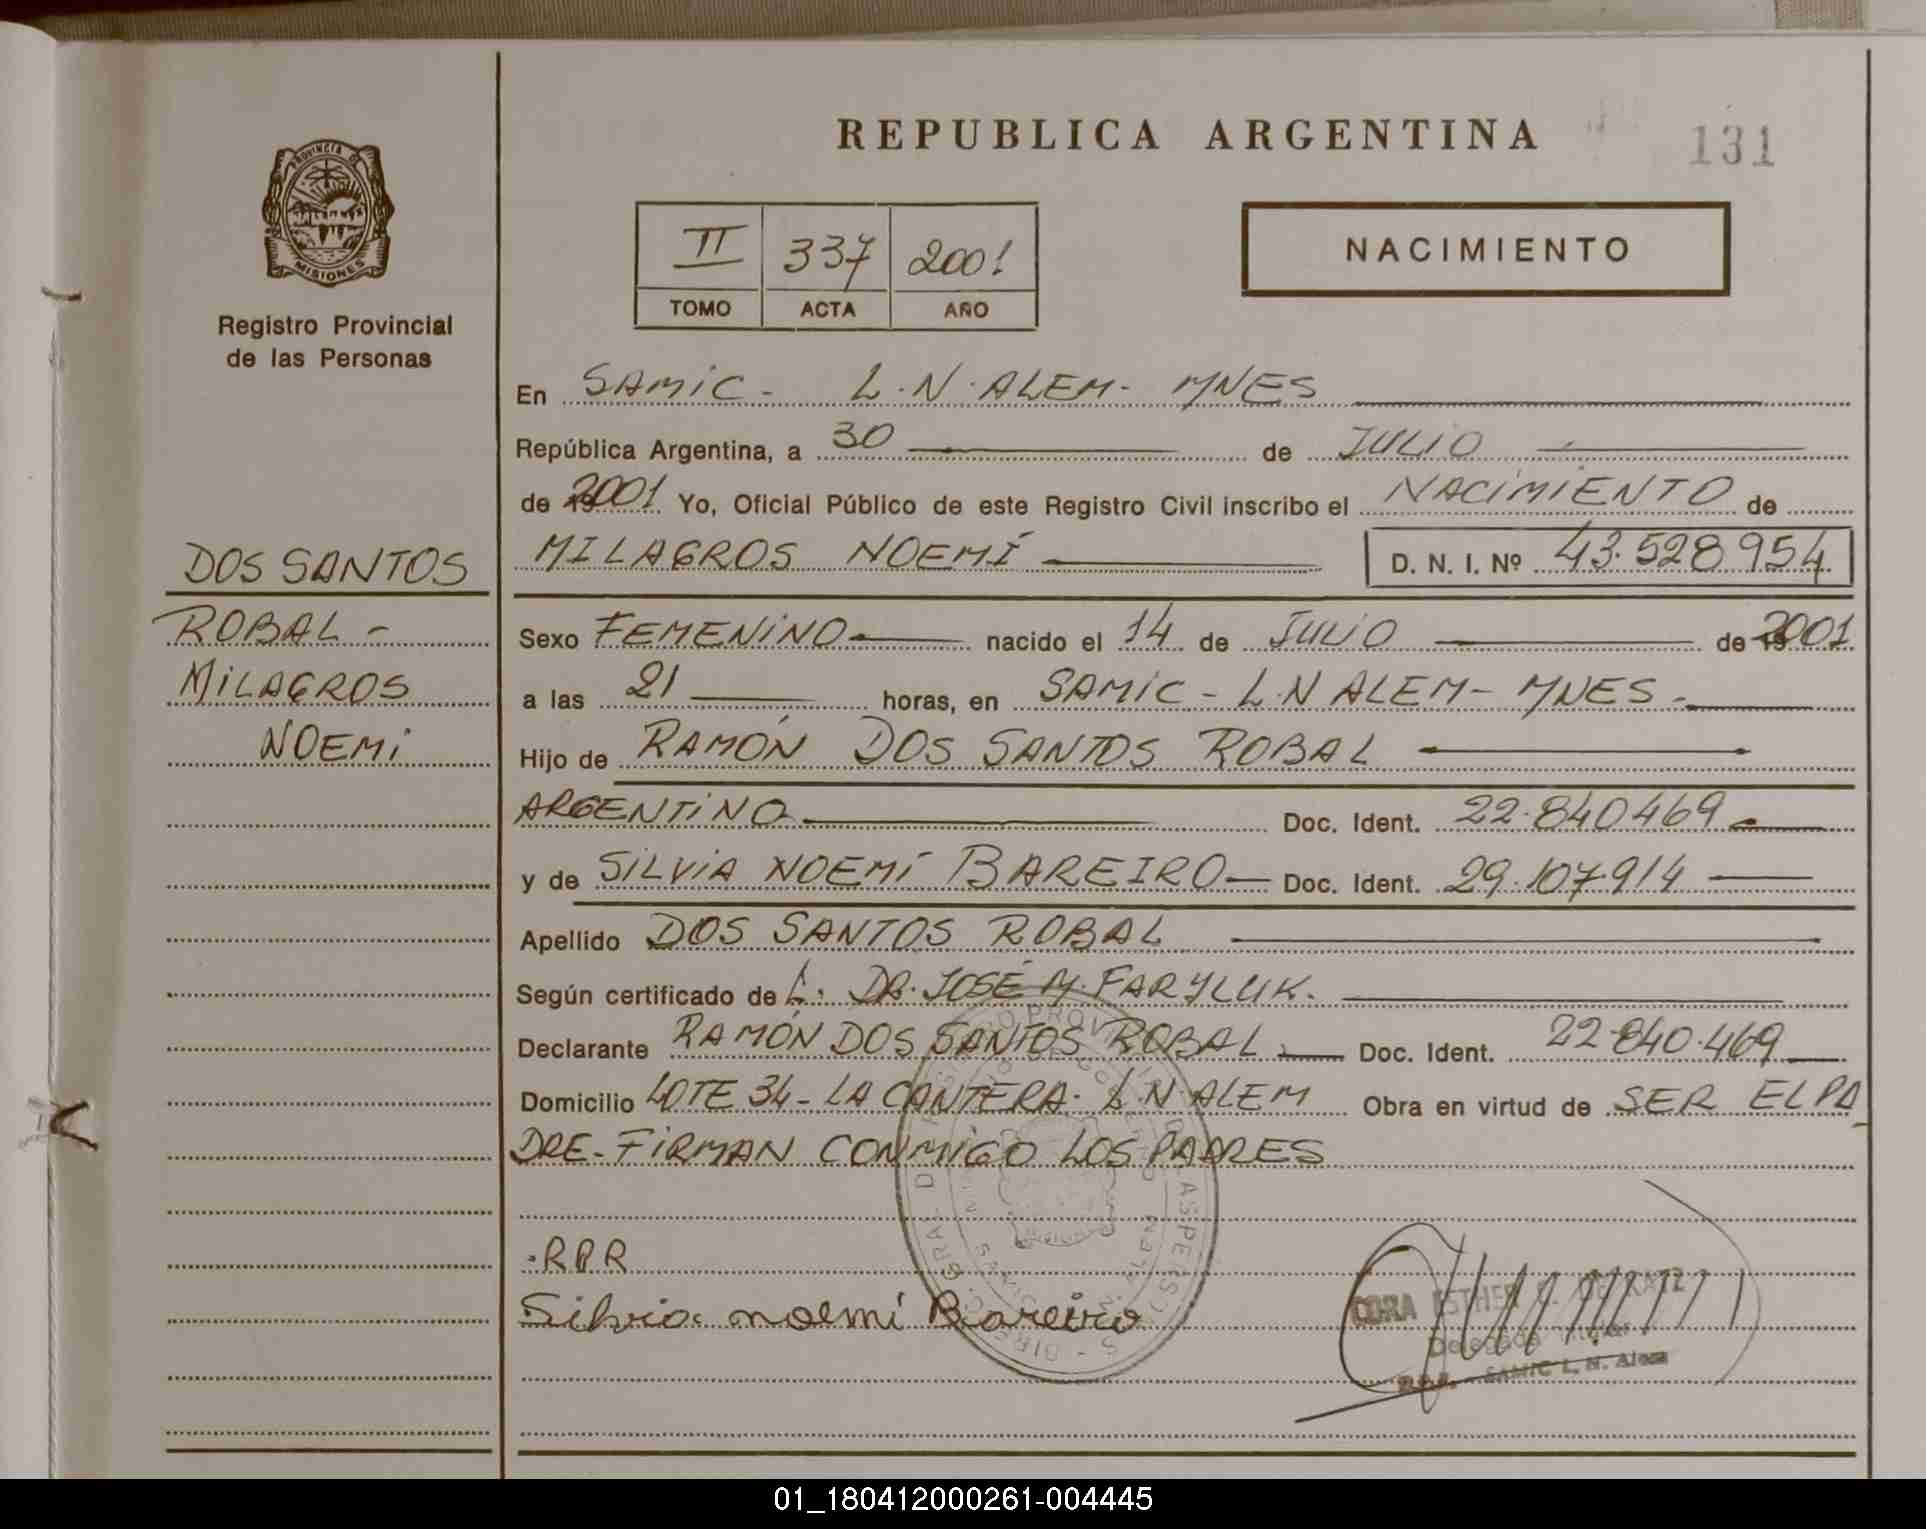 REPUBLICA ARGENTINA
131
PROVINCIA DE
MISIONES
Registro Provincial
de las Personas
II 337 2001
TOMO ACTA AÑO
NACIMIENTO
En SAMIC - L.N. ALEM - MNES
República Argentina, a 30 de JULIO
de 2001 Yo, Oficial Público de este Registro Civil inscribo el NACIMIENTO de
MILAGROS NOEMÍ D. N. I. Nº 43.528954
DOS SANTOS
ROBAL -
MILAGROS
NOEMI
Sexo FEMENINO nacido el 14 de JULIO de 2001
a las 21 horas, en SAMIC - L.N ALEM - MNES -
Hijo de RAMÓN DOS SANTOS ROBAL
ARGENTINO Doc. Ident. 22.840469
y de SILVIA NOEMÍ BAREIRO Doc. Ident. 29.107.914
Apellido DOS SANTOS ROBAL
Según certificado de DR. JOSÉ M. FARYLUK.
Declarante RAMÓN DOS SANTOS ROBAL Doc. Ident. 22.840.469
Domicilio LOTE 34 - LA CANTERA. L N ALEM Obra en virtud de SER EL PA
DRE - FIRMAN CONMIGO LOS PADRES
RPR
Silvia noemi Bareiro
DORA ESTHER DE KATZ
Delegada Titular
SAMIC L. N. Alem
01_180412000261-004445